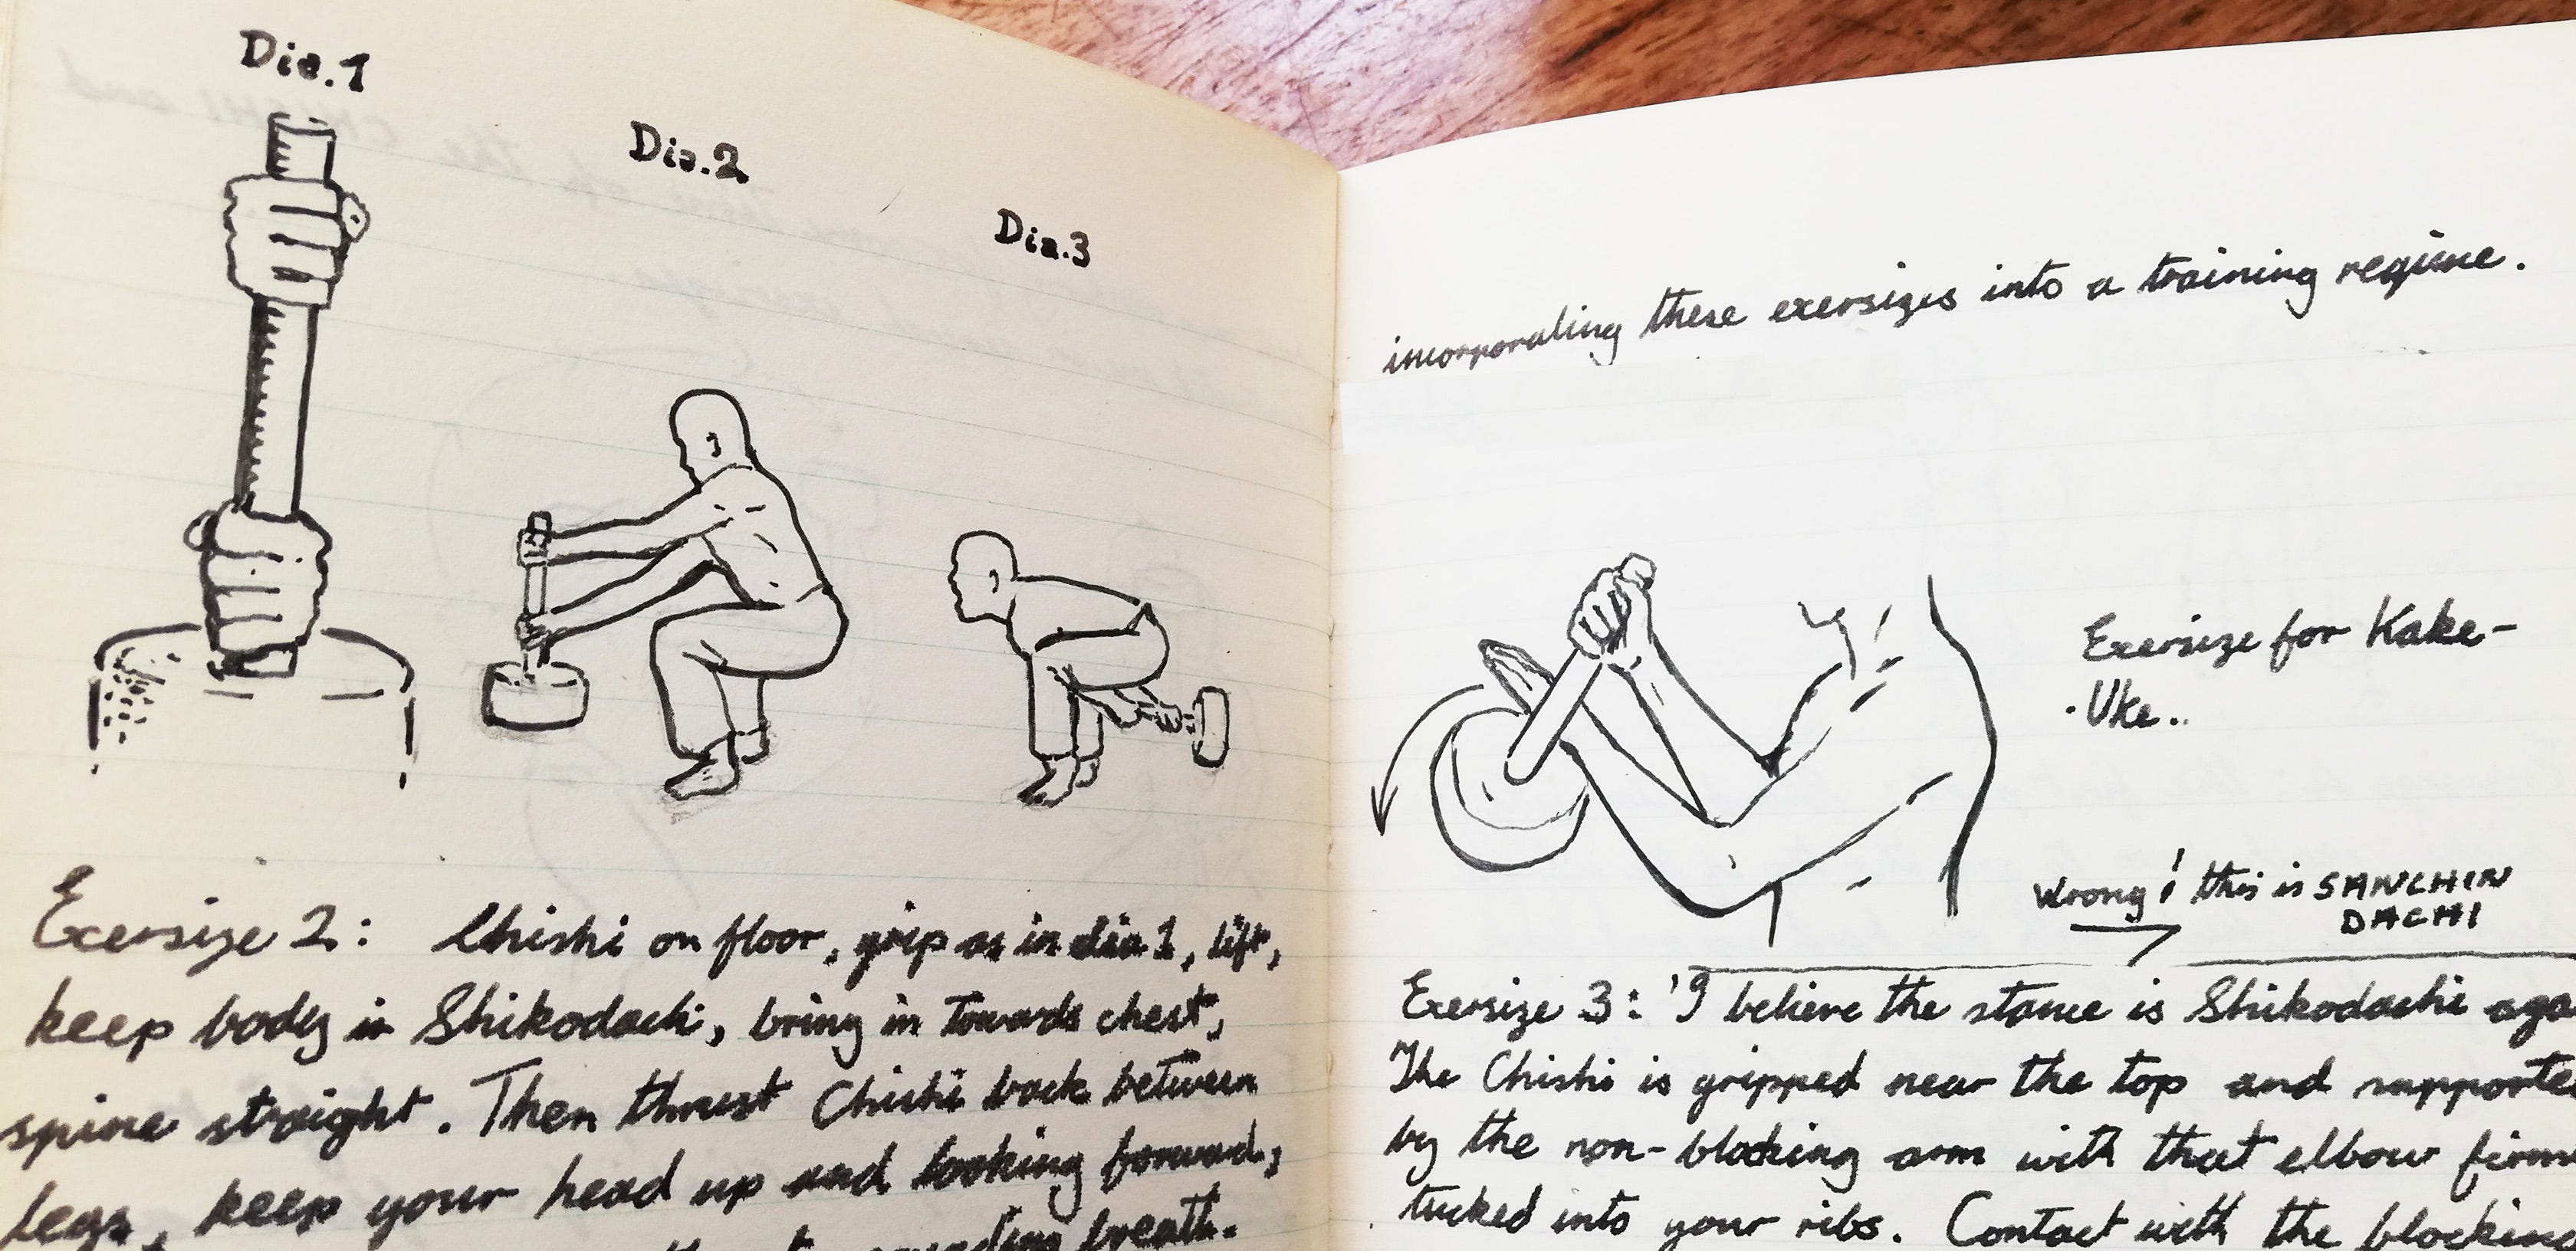 Dia.1
Dia.2
Dia.3
Exersize 2: Chishi on floor, grip as in dia 1, lift,
keep body in Shikodachi, bring in towards chest,
spine straight. Then thrust Chishi back between
legs, keep your head up and looking forward,
breath.
incorporating these exersizes into a training regime.
Exersize for Kake-
-Uke..
Wrong! this is SANCHIN
DACHI
Exersize 3: 'I believe the stance is Shikodachi aga
The Chishi is gripped near the top and supporte
by the non-blocking arm with that elbow firm
tucked into your ribs. Contact with the blocking